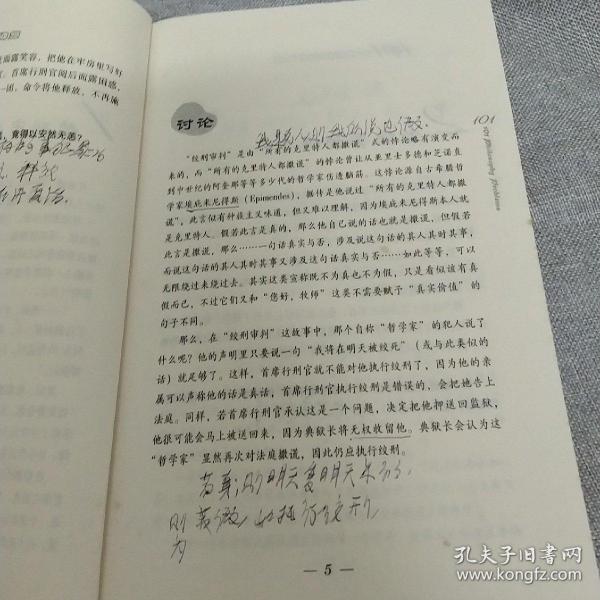 度面露笑容，把他在牢房里写好
首席行刑官阅后面露困惑，
一团，命令将他释放，不再施
，竟得以安然无恙？
讨论
101
101 Philosophy Problems
“绞刑审判”是由“所有的克里特人都撒谎”式的悖论略有演变而
来的，而“所有的克里特人都撒谎”的悖论曾让从亚里士多德和芝诺直
到中世纪的阿奎那等等多少代的哲学家伤透脑筋。这悖论源自古希腊哲
学家埃庇米尼得斯（Epimendes），据传是他说过“所有的克里特人都撒
谎”，此言似有种族主义味道，但又难以理解，因为埃庇米尼得斯本人就
是克里特人。假若此言是真的，那么他自己说的话也就是撒谎，但假若
此言是撒谎，那么……一句话真实与否，涉及说这句话的其人其时其事，
而说这句话的其人其时其事又涉及这句话真实与否……如此等等，可以
无限绕过来绕过去。其实这类宣称既不为真也不为假，只是看似该有真
假而已，不过它们又和“您好，牧师”这类不需要赋予“真实价值”的
句子不同。
那么，在“绞刑审判”这故事中，那个自称“哲学家”的犯人说了
什么呢？他的声明里只要说一句“我将在明天被绞死”（或与此类似的
话）就足够了。这样，首席行刑官就不能对他执行绞刑了，因为他的亲
属可以声称他的话是真话，首席行刑官执行绞刑是错误的，会把她告上
法庭。同样，若首席行刑官承认这是一个问题，决定把他押送回监狱，
他很可能会马上被送回来，因为典狱长将无权收留他。典狱长会认为这
“哲学家”显然再次对法庭撒谎，因此仍应执行绞刑。
— 5 —
孔夫子旧书网
www.kongfz.com